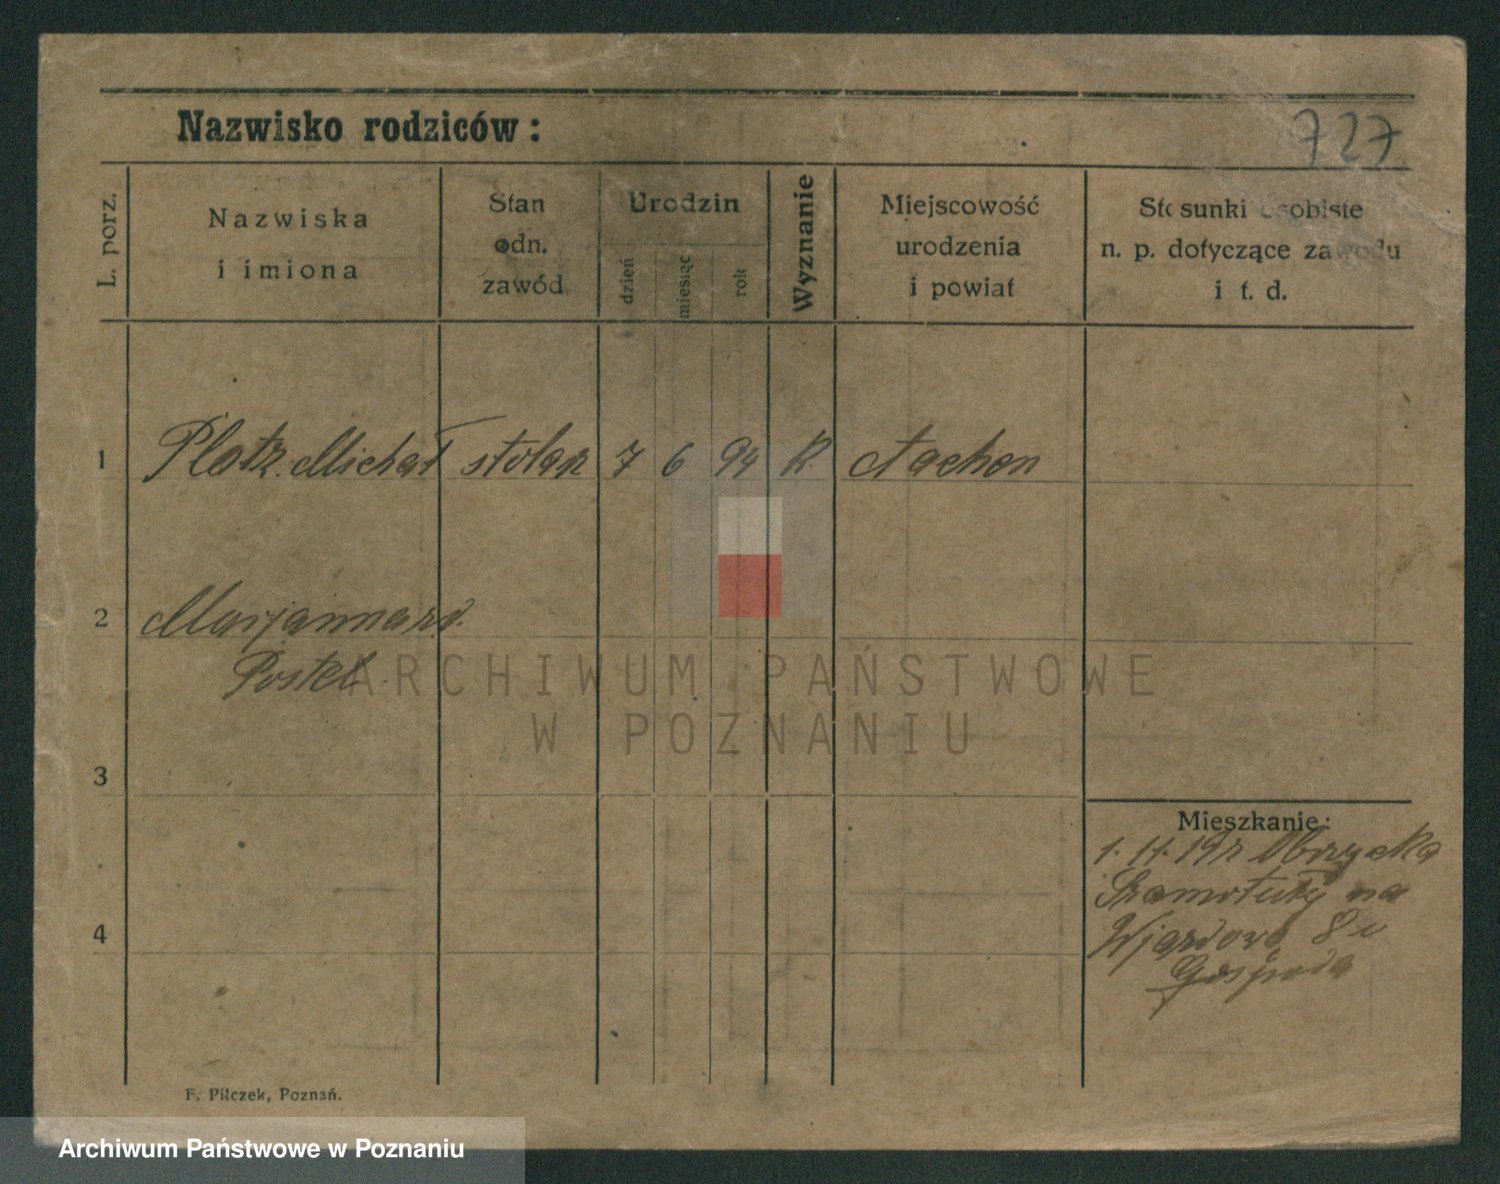 Nazwisko rodziców:
727
L. porz.
Nazwiska
i imiona
Stan
odn.
zawód
Urodzin
dzień
miesiąc
rok
Wyznanie
Miejscowość
urodzenia
i powiat
Stosunki osobiste
n. p. dotyczące zawodu
i t. d.
1 Plotz. Michał stolarz 7 6 94 K.
2 Marjanna
3
Mieszkanie:
Obrzycko
Szamotuły na
8 u
Gospoda
4
F. Pilczek, Poznań.
ARCHIWUM PAŃSTWOWE
W POZNANIU
Archiwum Państwowe w Poznaniu